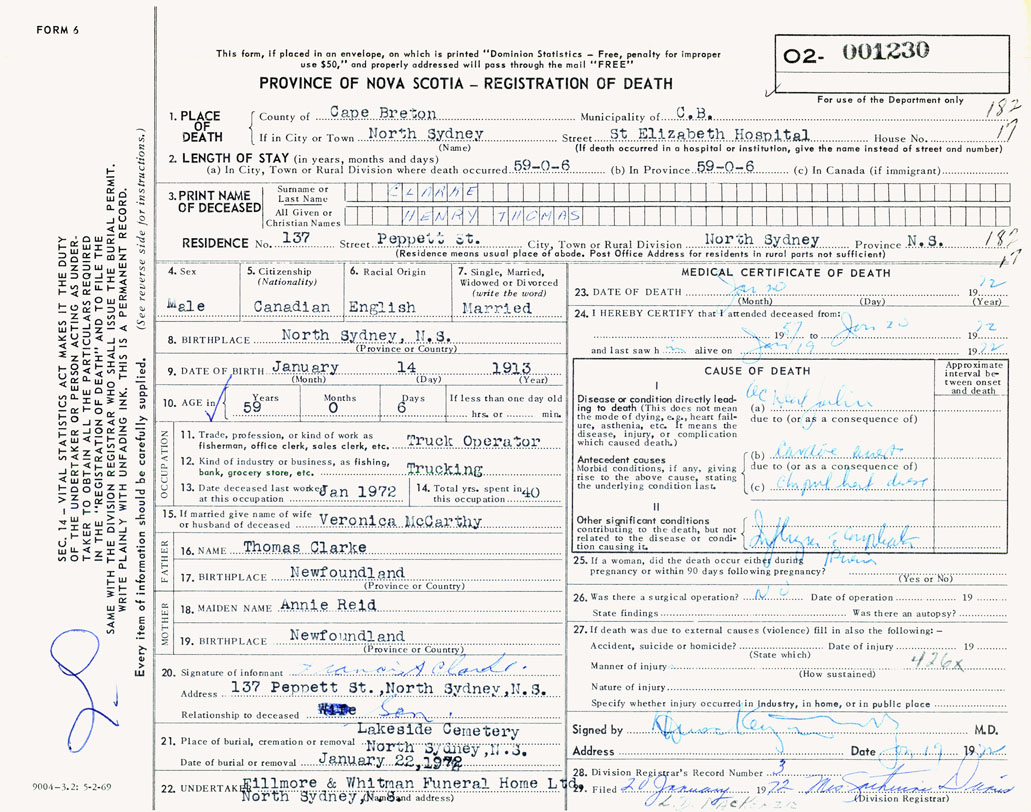 FORM 6
This form, if placed in an envelope, on which is printed "Dominion Statistics – Free, penalty for improper
use $50," and properly addressed will pass through the mail "FREE"
PROVINCE OF NOVA SCOTIA – REGISTRATION OF DEATH
02- 001230
For use of the Department only
182
17
1. PLACE OF DEATH
County of Cape Breton Municipality of C.B.
If in City or Town North Sydney Street St Elizabeth Hospital House No.
(Name) (If death occurred in a hospital or institution, give the name instead of street and number)
2. LENGTH OF STAY (in years, months and days)
(a) In City, Town or Rural Division where death occurred 59-0-6 (b) In Province 59-0-6 (c) In Canada (if immigrant)
3. PRINT NAME OF DECEASED
Surname or Last Name CLARKE
All Given or Christian Names HENRY THOMAS
RESIDENCE No. 137 Street Peppett St. City, Town or Rural Division North Sydney Province N.S.
(Residence means usual place of abode. Post Office Address for residents in rural parts not sufficient)
182
17
4. Sex
Male
5. Citizenship (Nationality)
Canadian
6. Racial Origin
English
7. Single, Married, Widowed or Divorced (write the word)
Married
8. BIRTHPLACE North Sydney, N.S.
(Province or Country)
9. DATE OF BIRTH January 14 1913
(Month) (Day) (Year)
10. AGE in Years 59 Months 0 Days 6 If less than one day old
hrs. or min.
OCCUPATION
11. Trade, profession, or kind of work as fisherman, office clerk, sales clerk, etc. Truck Operator
12. Kind of industry or business, as fishing, bank, grocery store, etc. Trucking
13. Date deceased last worked at this occupation Jan 1972
14. Total yrs. spent in this occupation 40
15. If married give name of wife or husband of deceased Veronica McCarthy
FATHER
16. NAME Thomas Clarke
17. BIRTHPLACE Newfoundland
(Province or Country)
MOTHER
18. MAIDEN NAME Annie Reid
19. BIRTHPLACE Newfoundland
(Province or Country)
20. Signature of informant Francis A Clarke.
Address 137 Peppett St.,North Sydney,N.S.
Relationship to deceased Wife Son.
21. Place of burial, cremation or removal Lakeside Cemetery
North Sydney,N.S.
Date of burial or removal January 22,1972
22. UNDERTAKER Fillmore & Whitman Funeral Home Ltd.
North Sydney, N.S.
(Name and address)
MEDICAL CERTIFICATE OF DEATH
23. DATE OF DEATH Jan 20 1972
(Month) (Day) (Year)
24. I HEREBY CERTIFY that I attended deceased from:
1957 to Jan 20 1972
and last saw him alive on Jan 19 1972
CAUSE OF DEATH
Approximate interval between onset and death
I
Disease or condition directly leading to death (This does not mean the mode of dying, e.g., heart failure, asthenia, etc. It means the disease, injury, or complication which caused death.)
(a) Ac Heart failure
due to (or as a consequence of)
Antecedent causes
Morbid conditions, if any, giving rise to the above cause, stating the underlying condition last.
(b) Cardiac arrest
due to (or as a consequence of)
(c)
II
Other significant conditions contributing to the death, but not related to the disease or condition causing it.
25. If a woman, did the death occur either during pregnancy or within 90 days following pregnancy?
(Yes or No)
26. Was there a surgical operation? No Date of operation 19
State findings Was there an autopsy?
27. If death was due to external causes (violence) fill in also the following: –
Accident, suicide or homicide? Date of injury 19
(State which)
Manner of injury 426X
(How sustained)
Nature of injury
Specify whether injury occurred in Industry, in home, or in public place
Signed by M.D.
Address Date Jan 19 1972
28. Division Registrar's Record Number 3
29. Filed 20 January 1972 Mrs
(Division Registrar)
SEC. 14 – VITAL STATISTICS ACT MAKES IT THE DUTY
OF THE UNDERTAKER OR PERSON ACTING AS UNDER-
TAKER TO OBTAIN ALL THE PARTICULARS REQUIRED
IN THE "REGISTRATION OF DEATH" AND TO FILE THE
SAME WITH THE DIVISION REGISTRAR WHO SHALL ISSUE THE BURIAL PERMIT.
WRITE PLAINLY WITH UNFADING INK. THIS IS A PERMANENT RECORD.
Every item of information should be carefully supplied. (See reverse side for instructions.)
9004–3.2: 5-2-69